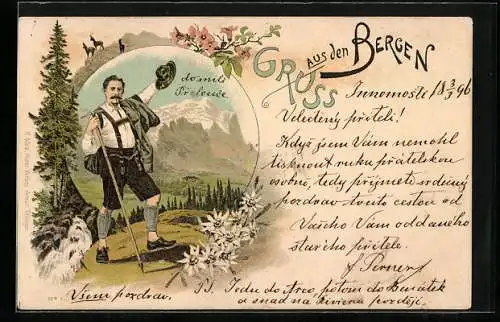 GRUSS AUS den BERGEN
do milé
Přelouče.
Innomostí 18 3/7 96
Veledůvěrný příteli!
Když jsem Vám nemohl
tisknout ruku přátelskou
osobně, tedy přijměte srdečný
pozdrav touto cestou od
Vašho Vám oddaného
starého přítele
J Perner
Všem pozdrav.
P.S. Jedu do Arco, potom do Benátek
a snad na Rivieru později.